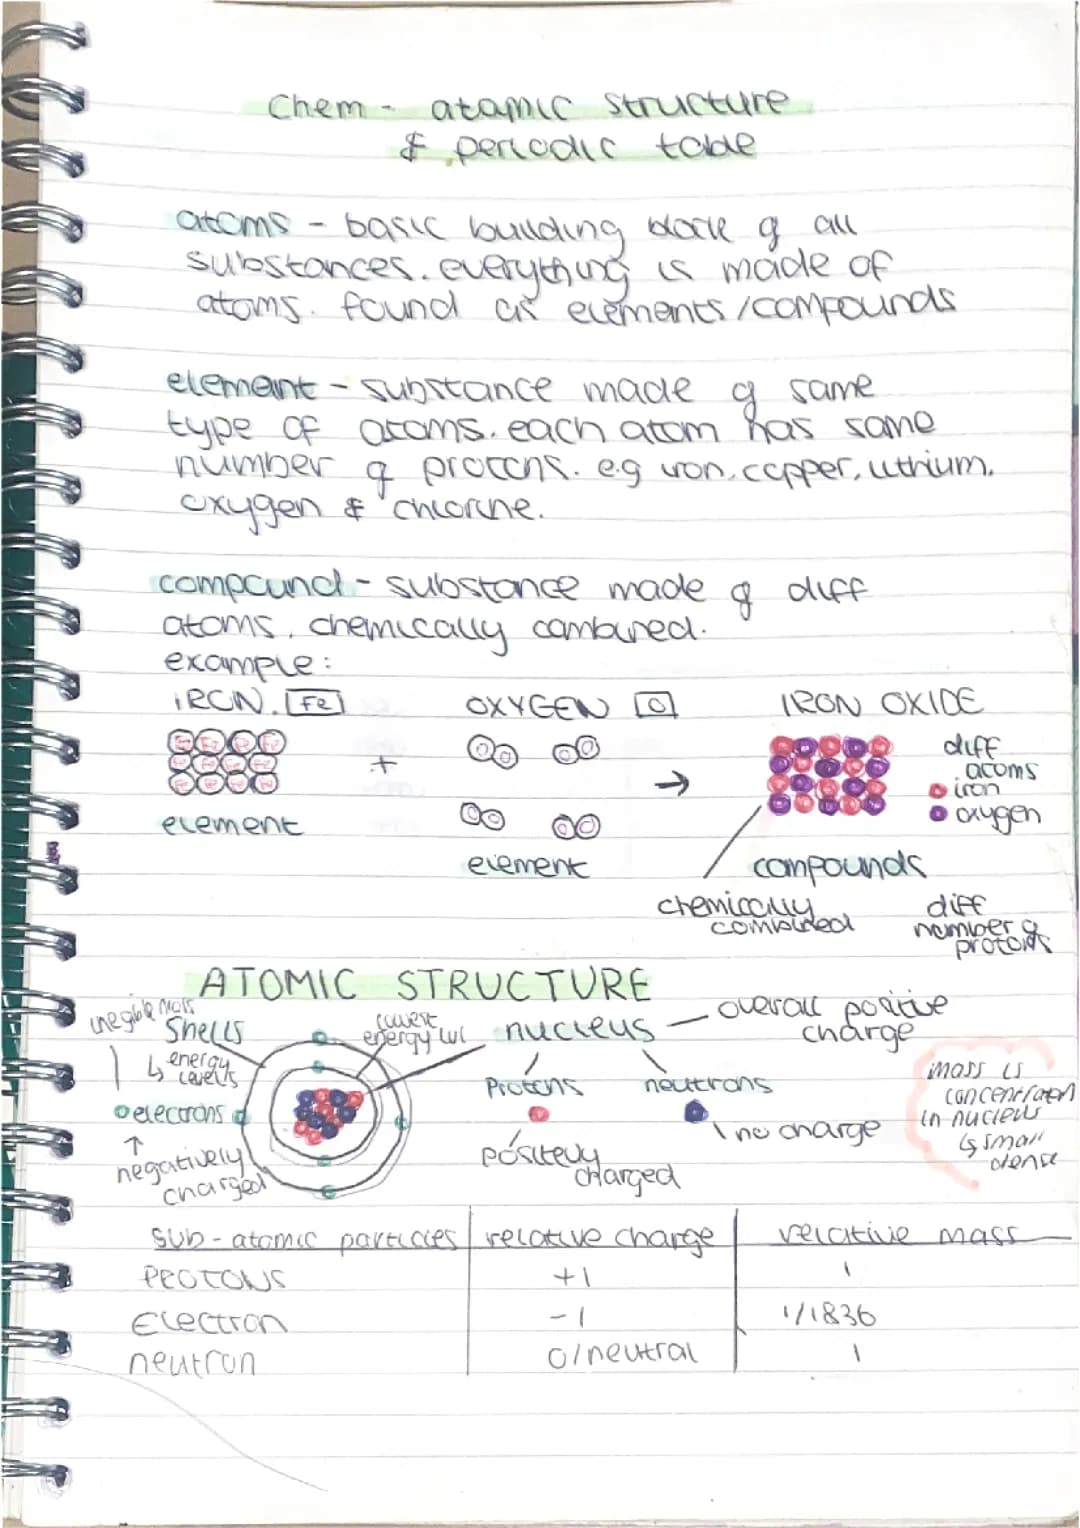 Chem - atomic structure
& periodic table
atoms - basic building block of all
substances. everything is made of
atoms. found as elements/compounds
element - substance made of same
type of atoms. each atom has same
number of protons. e.g iron, copper, lithium,
oxygen & chlorine.
compound - substance made of diff
atoms, chemically combined.
example:
IRON. Fe
OXYGEN O
IRON OXIDE
Fe Fe Fe Fe
Fe Fe Fe Fe
Fe Fe Fe Fe
+
→
O O O O
O O O O
diff
atoms
iron
oxygen
element
element
compounds
chemically
combined
diff
number of
protons
ATOMIC STRUCTURE
mass
Shells
↳ energy
levels
electrons
↑
negatively
charged
lowest
energy lvl
nucleus
overall positive
charge
Protons
neutrons
positevy
charged
no charge
mass is
concentrated
in nucleus
↳ small
dense
sub-atomic particles | relative charge | relative mass
PROTONS +1 1
Electron -1 1/1836
neutron 0/neutral 1